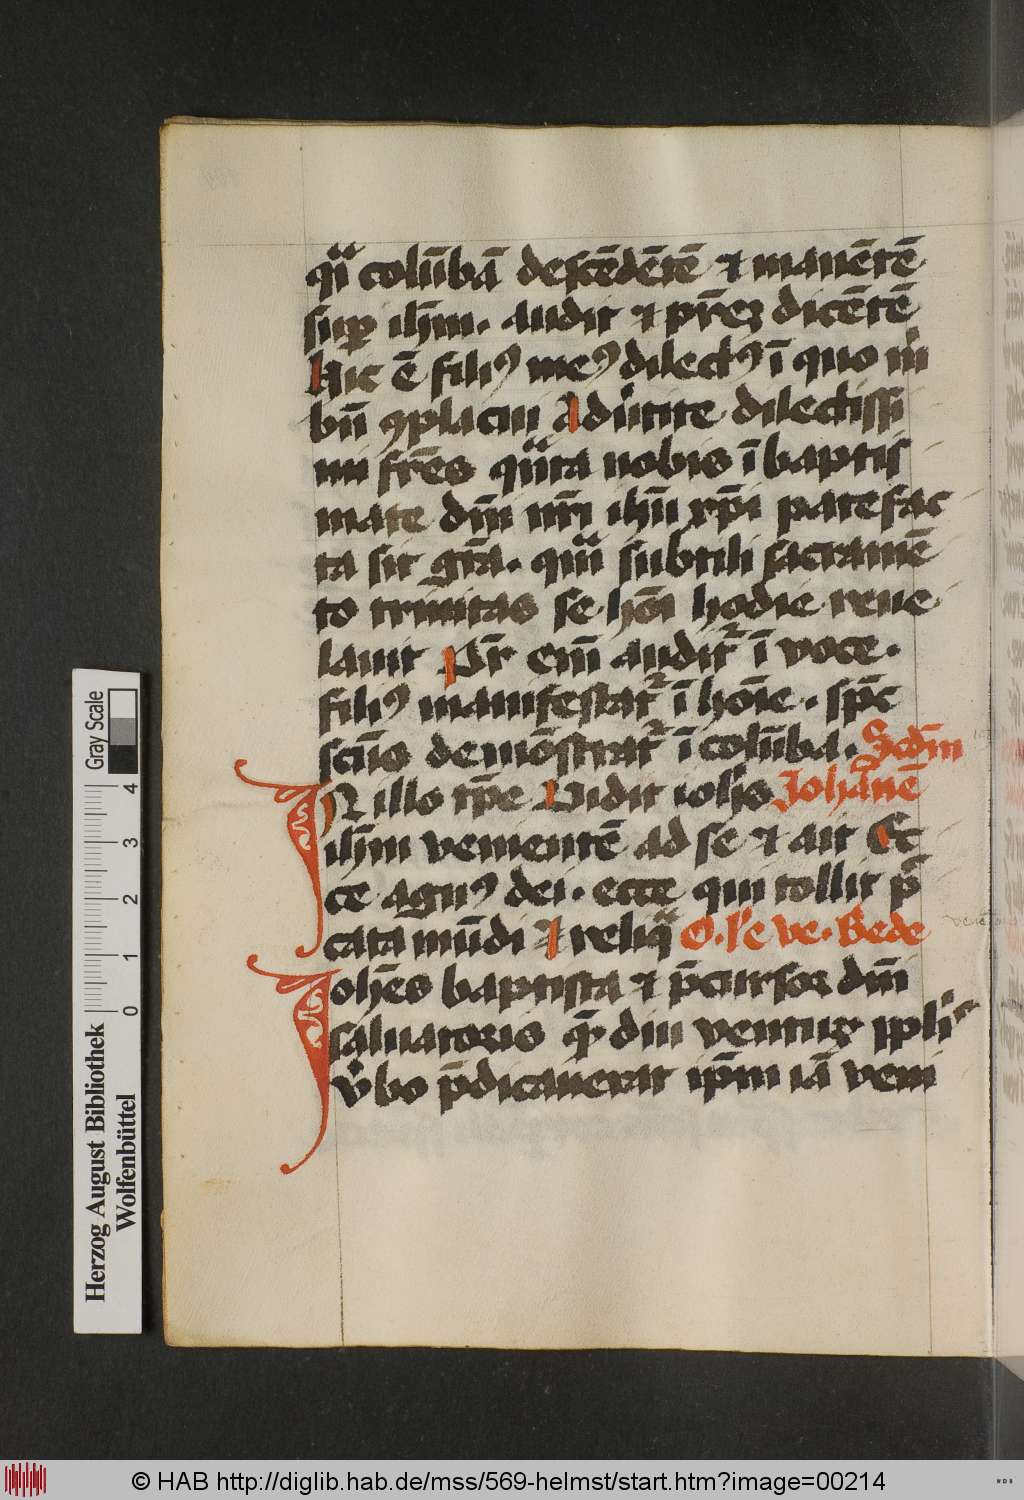 qͣi colūbā descēdētē ⁊ manētē
suꝑ ihm̄. audit ⁊ prēꝫ dicētē
hic ē filiꝰ meꝰ dilectꝰ ī quo m̄
bn̄ ꝯplacui Aduͥtite dilectissi
mi frēs qn̄ta nobis ī baptis
mate dn̄i nr̄i ihū xp̄i patefac
ta sit grā. qm̄ subtili sacramē
to trinitas se hōi hodie reue
lauit Pr̄ em̄ auditᷣ ī voce.
filiꝰ manifestatᷣ ī hōie. spc̄
scūs demōstratᷣ ī colūba. Scdm̄
IN illo tp̄e Vidit iohs̄ Johānē
ihm̄ venientē ad se ⁊ ait Ec
ce agnꝰ dei. ecce qui tollit pͨ
cata mūdi Et reliqͣ O. l'e ve. Bede
Johēs baptista ⁊ p̄cursor dn̄i
saluatoris qͤ diu ventuꝝ ipliˢ
v̾bo p̄dicauerat ip̄m iā veni
Herzog August Bibliothek
Wolfenbüttel
Gray Scale
0 1 2 3 4
© HAB http://diglib.hab.de/mss/569-helmst/start.htm?image=00214